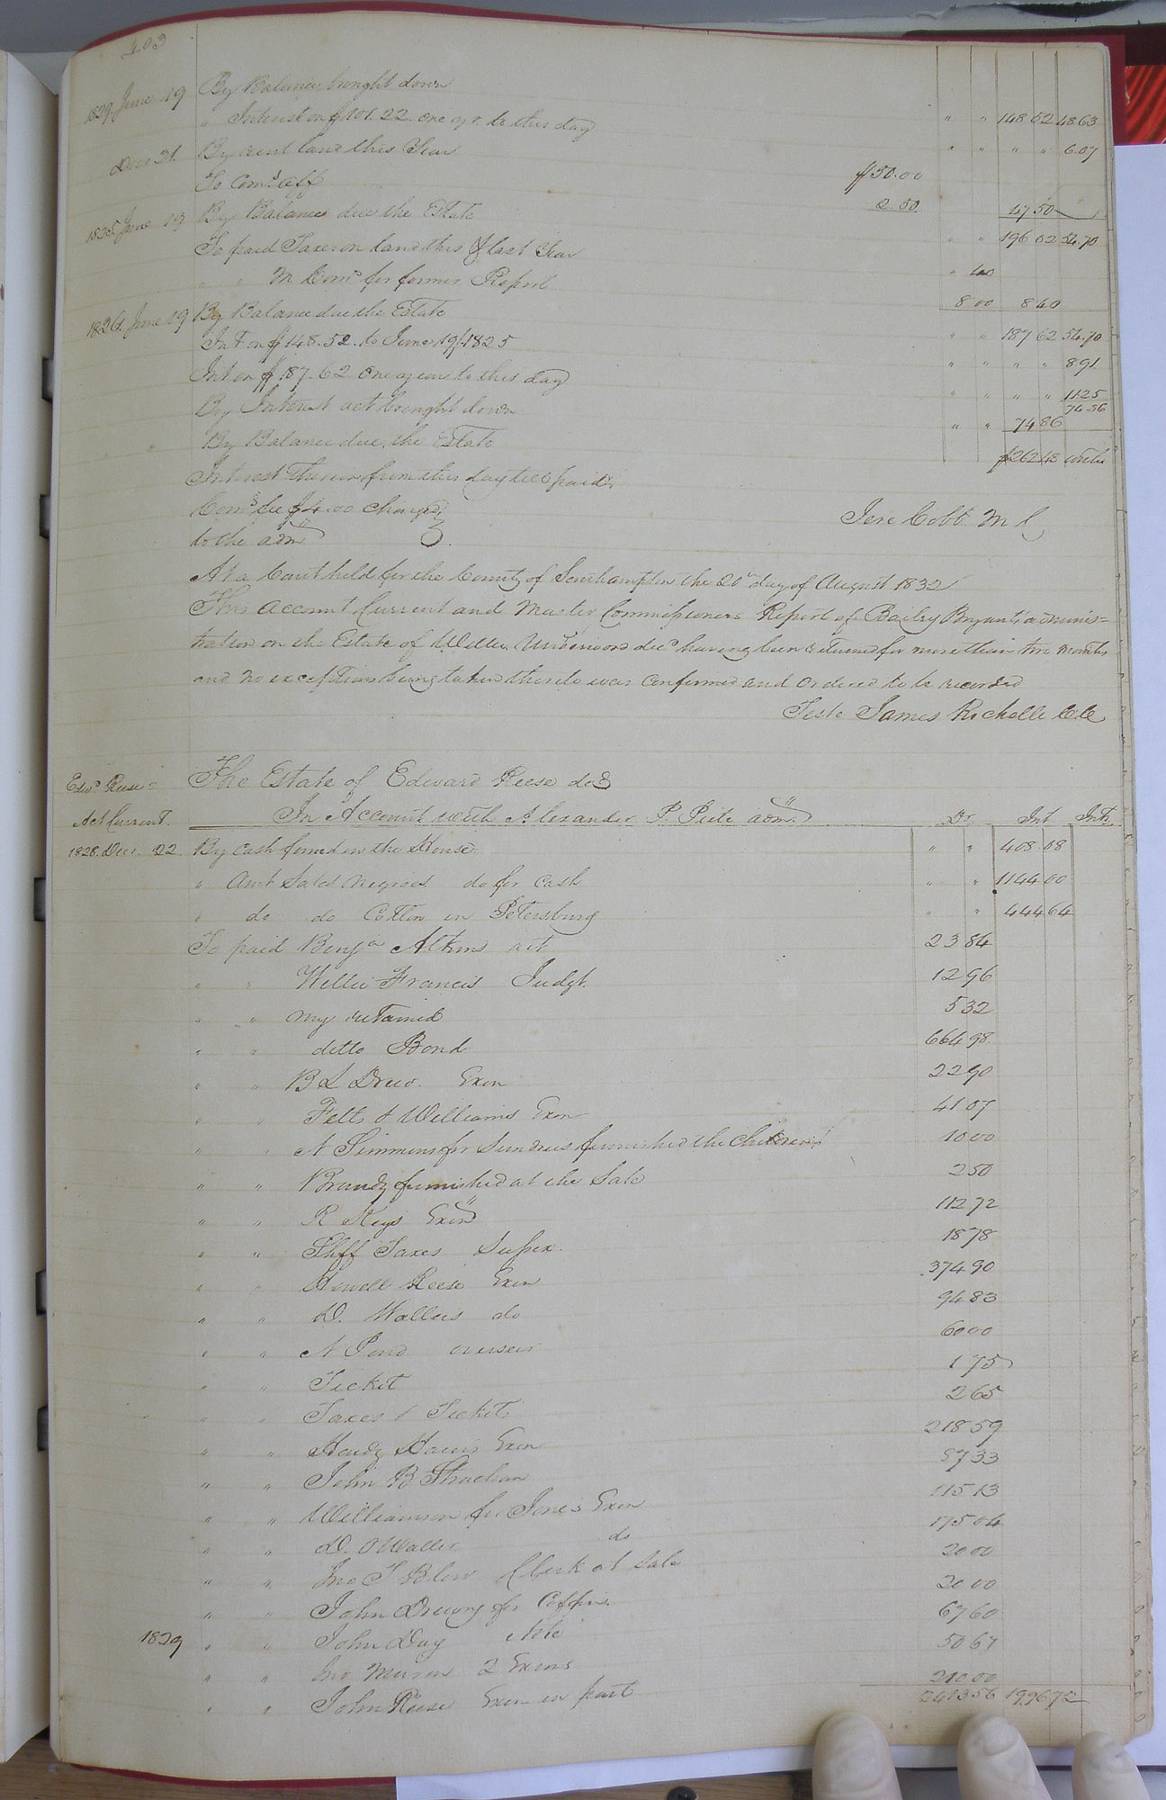 403
By Balance brought down
1829 June 19 " Interest on $101.22 one yr. to this day " " 148 52 48 63
Decr 31. By rent land this Year " " " " 6.07
To Coms. off $50.00
2.50 47 50
1825 June 19 By Balance due the Estate " " 196 02 54.70
To paid Taxes on land this & last Year " 40
" " M Coms for former Report 8 00 8 40
1826 June 19 By Balance due the Estate " " 187 62 54.70
Int on $148.52 to June 19th 1825 " " " " 8 91
Int on $187.62 one year to this day " " " " 11 25
By Interest act brought down " " 74 86 74 86
By Balance due the Estate $262 48 with
Interest thereon from this day till paid.
Coms fee $4.00 charged
to the admr
Jere Cobb M C
At a Court held for the County of Southampton the 20th day of August 1832
This Account Current and Master Commissioners Report of Bailey Bryant's adminis=
tration on the Estate of Underwood decd having been returned for more than two months
and no exceptions being taken thereto was Confirmed and Ordered to be recorded
Teste James Rochelle Clk
Edwd Reese
Act Current.
The Estate of Edward Reese decd
In Account with Alexander P. Peete admr Dr
1828. Decr 22 By Cash found in the House " " 408 08
" Amt Sales Negroes do for Cash " " 1144 00
" do do Cotton in Petersburg " " 444 64
To paid Benja Atkins act 23 84
" " Willie Francis Judgt. 12 96
" " my retained 5 32
" " ditto Bond 664 98
" " B L Drew. Exon 22 90
" " Felts & Williams Exon 41 07
" " N Simmons for Sundries furnished the Children 10 00
" " Brandy furnished at the Sale 2 50
" " R Keys Exon 112 72
" " Shff Taxes Sussex. 18 78
" " Howell Reese Exon 374 90
" " D. Wallers do 94 83
" " N Pond overseer 60 00
" " Ticket 1 75
" " Taxes & Tickets 2 65
" " Hardy Harris Exon 218 59
" " John B Strachan 87 33
" " Williamson for Jones Exon 115 13
" " D. Waller do 175 04
" " Jno T Blow Clerk at Sale 20 00
" " John Drewry for Coffins 20 00
1829 " " John Day Note 67 60
" " Jno 2 Exons 50 67
" " John Reese Exon in part 210 00
2413 56 1996 72